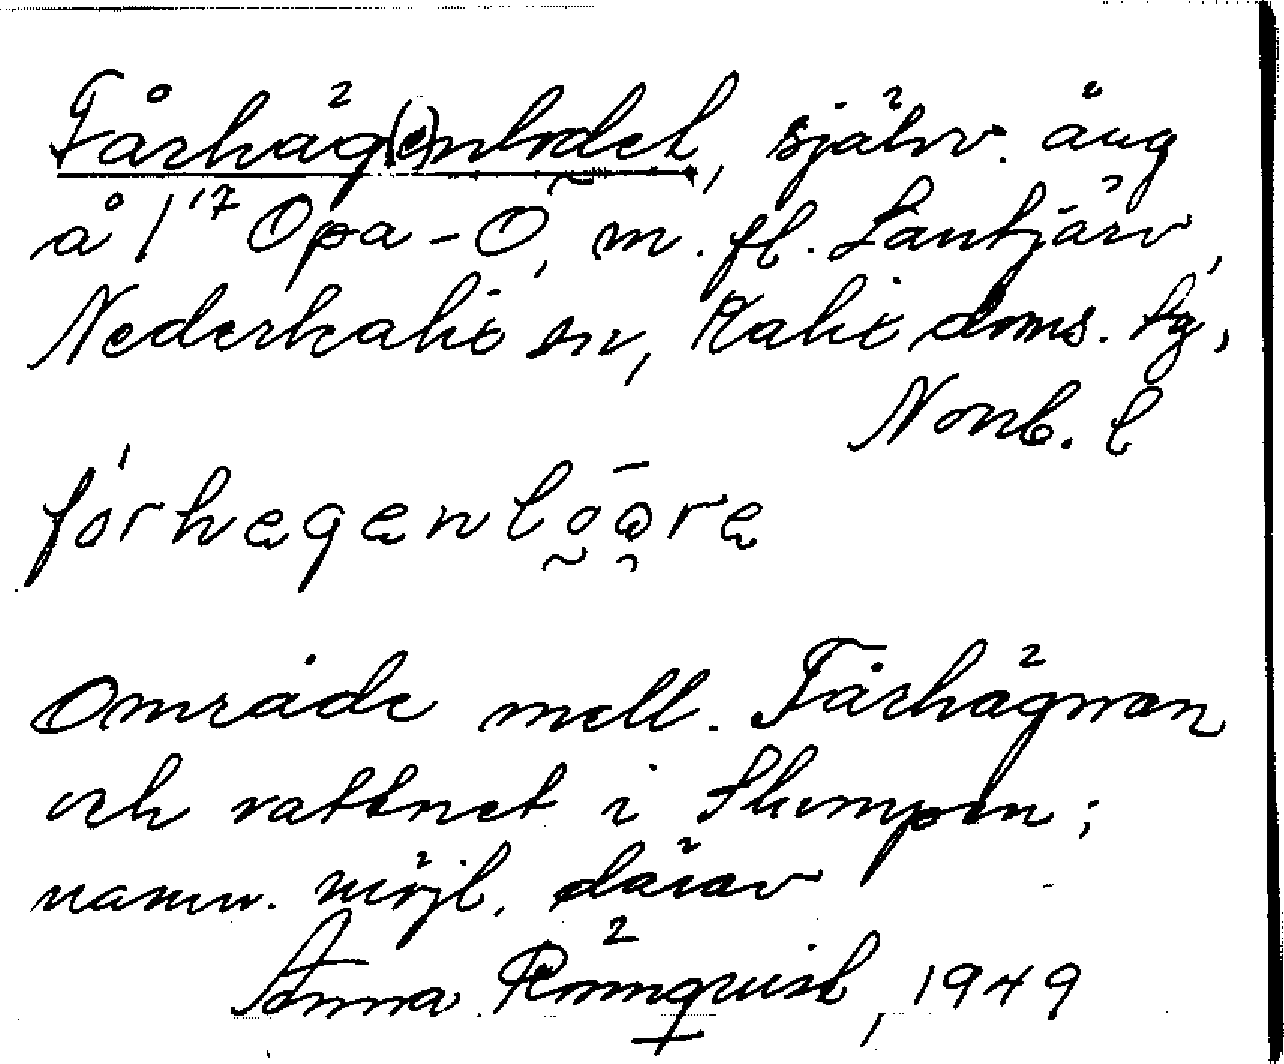 Fårhäg(e)nlodet, självv. äng
å 1¹⁷ Opa-Ö, m. fl. Lantjärv,
Nederkalix sn, Kalix doms. hg,
Norrb. l
området mell. Fårhägnan
och vattnet i Slumpen;
namn. möjl. därav
Anna Rönnqvist, 1949